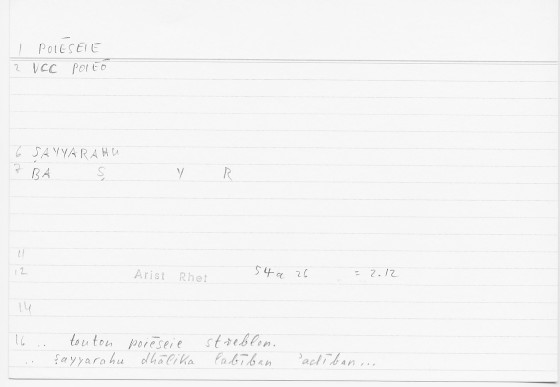 1 POIĒSEIE
2 VCC POIEŌ
6 ṢAYYARAHU
7 BA Ṣ Y R
11
12 Arist Rhet 54a 26 = 2.12
14
16 .. touton poiēseie streblon.
.. ṣayyarahu dhālika labīban 'adīban...